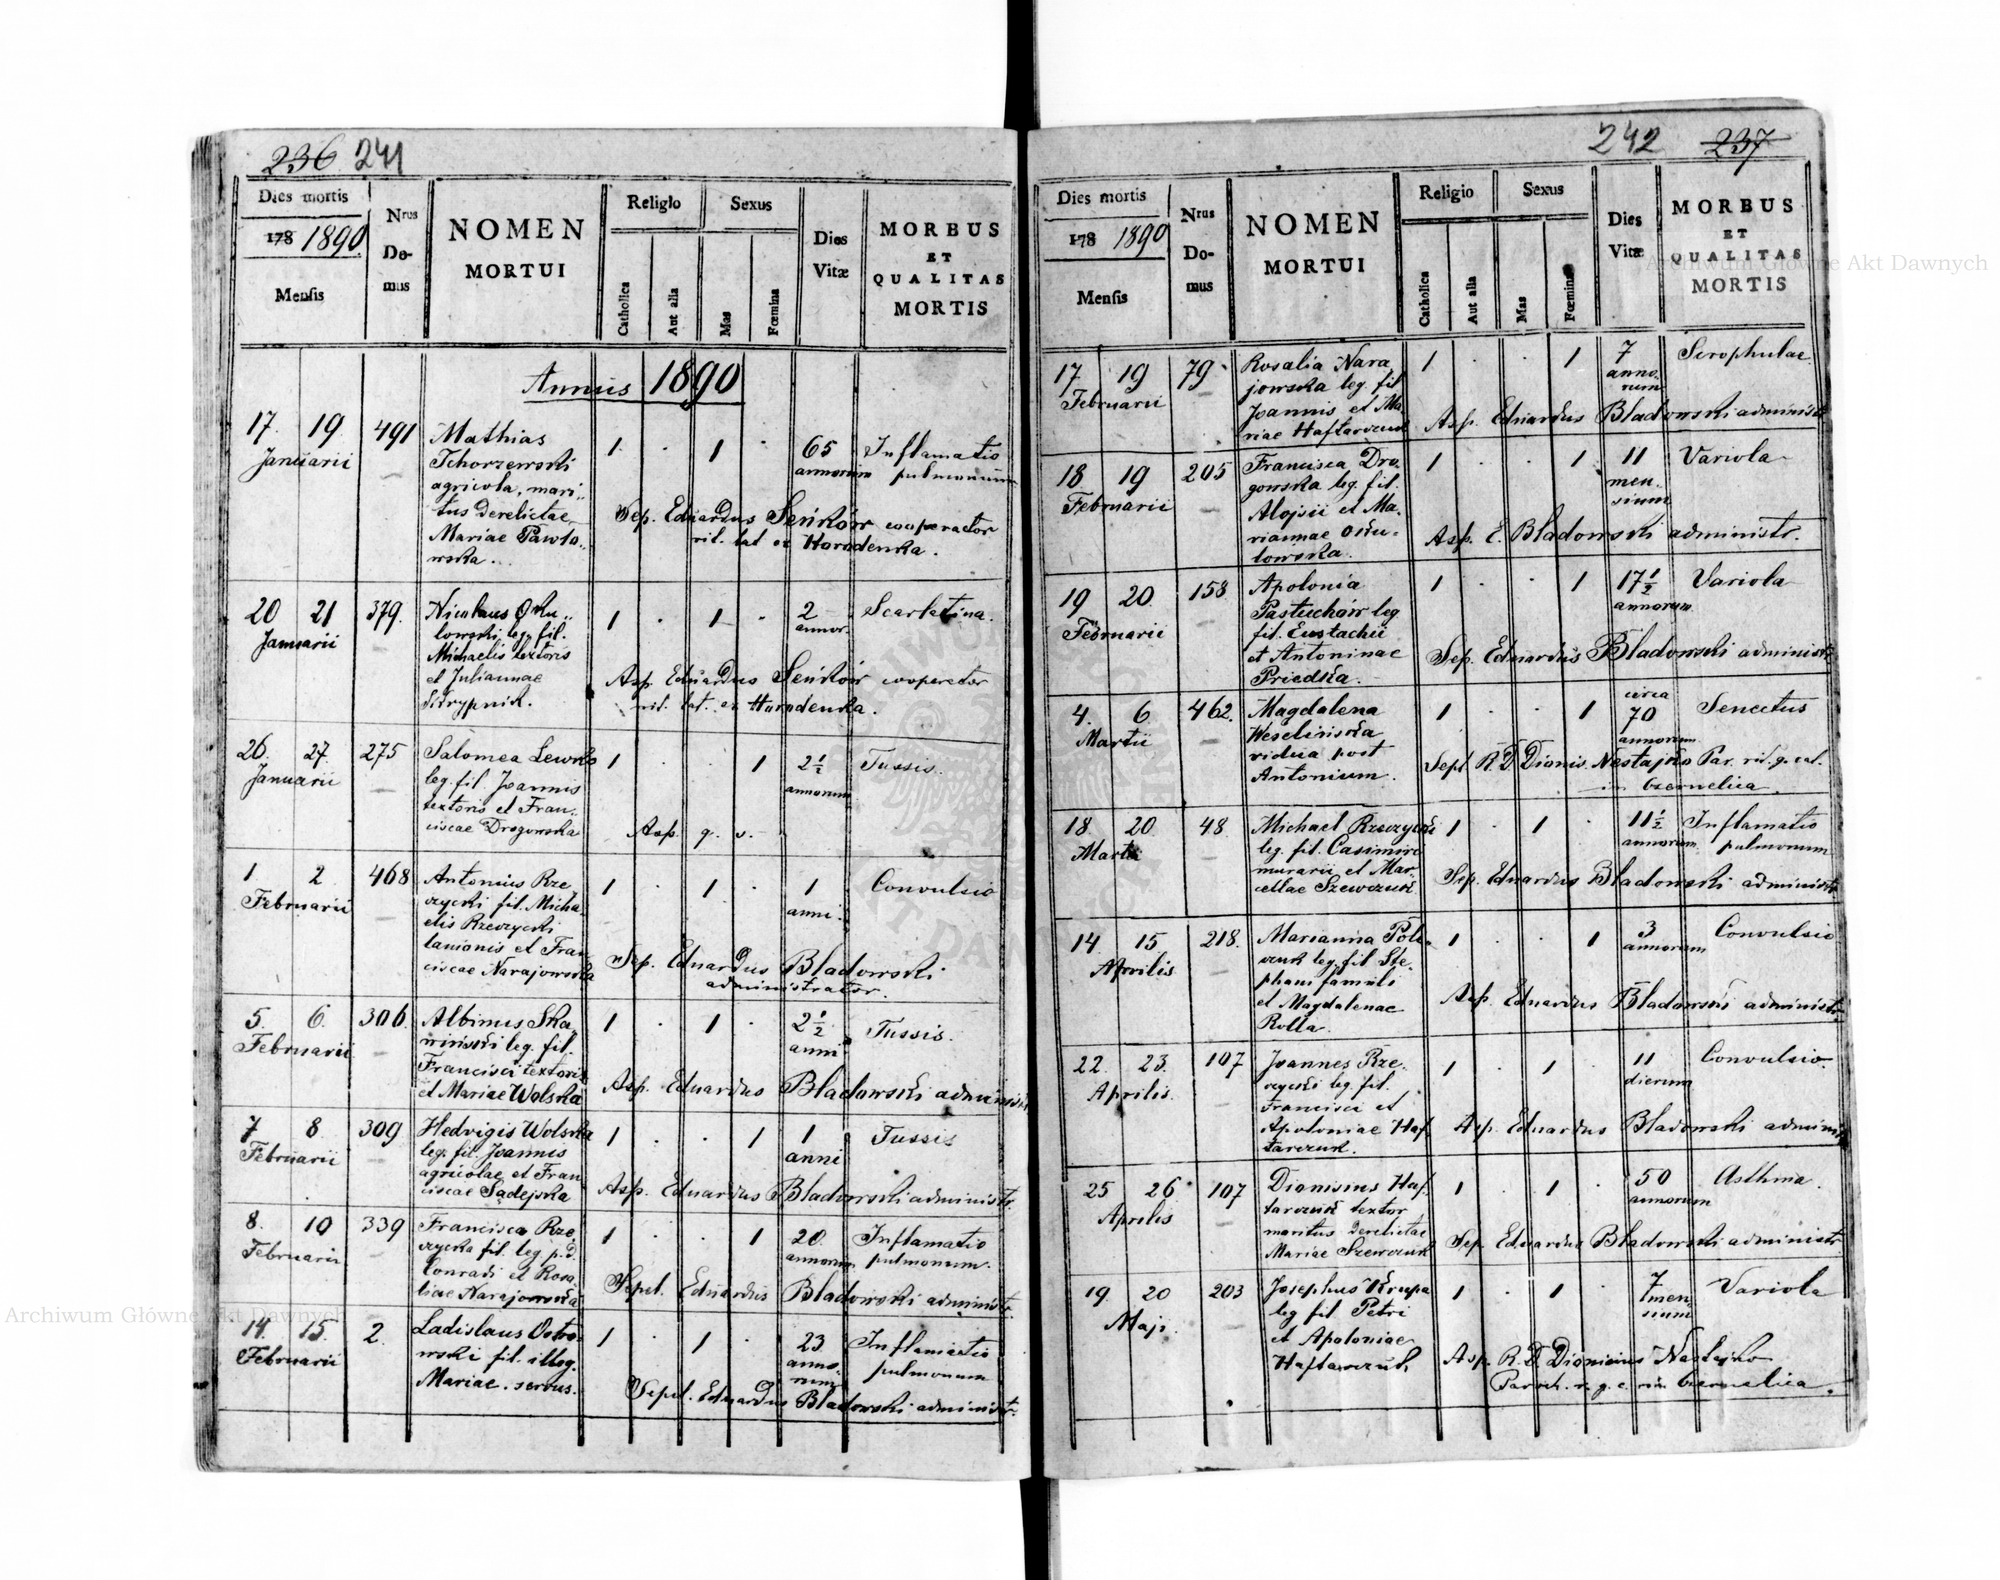 236 241
Dies mortis
178 1890.
Mensis
Nrus
Do-
mus
NOMEN
MORTUI
Religio
Catholica
Aut alia
Sexus
Mas
Fœmina
Dies
Vitæ
MORBUS
ET
QUALITAS
MORTIS
Annus 1890
17. 19. 491 Mathias 1. . 1 . 65 Inflamatio
Januarii Tchorzewski annorum pulmonum
agricola, mari-
tus derelictae
Mariae Pawło-
wska.
Sep. Eduardus Seńków cooperator
rit. lat. ex Horodenka.
20 21 379. Nicolaus Oku- 1 . 1 . 2 Scarlatina.
Januarii łowski leg. fil. annor.
Michaelis textoris
et Juliannae
Skrypnik.
Asp. Eduardus Seńków cooperator
rit. lat. ex Horodenka.
26. 27. 275 Salomea Lewko 1 . . 1 2½ Tussis.
Januarii leg. fil. Joannis annorum
textoris et Fran-
ciscae Drogowska
Asp. q. s.
1. 2. 468 Antonius Rze- 1 . 1 . 1 Convulsio
Februarii czycki fil. Micha- anni.
elis Rzeczycki
lanionis et Fran-
ciscae Narajowska
Sep. Eduardus Bladowski
administrator.
5. 6. 306. Albinus Ska- 1 . 1 . 2½ Tussis.
Februarii wiński leg. fil. anni
Francisci textoris
et Mariae Wolska
Asp. Eduardus Bladowski administr.
7 8. 309 Hedvigis Wolska 1 . . 1 1 Tussis
Februarii leg. fil. Joannis anni
agricolae et Fran-
ciscae Sądejska
Asp. Eduardus Bladowski administr.
8. 10 339 Francisca Rze- 1 . . 1 20. Inflamatio
Februarii czycka fil. leg. p. d. annorum pulmonum.
Conradi et Rosa-
liae Narajowska
Sepel. Eduardus Bladowski administr.
14. 15. 2. Ladislaus Ostro- 1 . 1 . 23. Inflamatio
Februarii wski fil. illeg. anno- pulmonum
Mariae. servus. rum
Sepel. Eduardus Bladowski administr.
242 237
Dies mortis
178 1890
Mensis
Nrus
Do-
mus
NOMEN
MORTUI
Religio
Catholica
Aut alia
Sexus
Mas
Fœmina
Dies
Vitæ
MORBUS
ET
QUALITAS
MORTIS
17 19 79. Rosalia Nara 1 . . 1 7 Scrophulae
Februarii jowska leg. fil. anno-
Joannis et Ma- rum
riae Haftarczuk
Asp. Eduardus Bladowski administr.
18. 19 205 Francisca Dro- 1 . . 1 11 Variola
Februarii gowska leg. fil. men-
Alojsii et Ma- sium
riannae Oku-
łowska.
Asp. E. Bladowski administr.
19 20. 158 Apolonia 1 . . 1 17½ Variola
Februarii Pastuchów leg. annorum
fil. Eustachii
et Antoninae
Priedka.
Sep. Eduardus Bladowski administr.
4. 6. 462. Magdalena 1 . . 1 circa 70 Senectus
Martii Weselińska annorum
vidua post
Antonium.
Sepl R. D. Dionis. Nestajko Par. rit. g. cat.
in Czernelica.
18. 20. 48. Michael Rzeczycki 1 . 1 . 11½ Inflamatio
Martii leg. fil. Casimiri annorum pulmonum
murarii et Mar-
cellae Szewczuk
Sep. Eduardus Bladowski administr.
14 15. 218. Marianna Pole- 1 . . 1 3 Convulsio
Aprilis czuk leg. fil. Ste- annorum
phani famuli
et Magdalenae
Rolla.
Asp. Eduardus Bladowski administr.
22. 23. 107 Joannes Rze- 1 . 1 . 11 Convulsio.
Aprilis. czycki leg. fil. dierum
Francisci et
Apoloniae Haf-
tarczuk.
Asp. Eduardus Bladowski administr.
25 26. 107 Dionisius Haf- 1 . 1 . 50 Asthma.
Aprilis tarczuk textor annorum
maritus derelictae
Mariae Szewczuk
Sep. Eduardus Bladowski administr.
19. 20 203 Josephus Krupa 1 . 1 . 7 men- Variola
Maji. leg. fil. Petri sium
et Apoloniae
Haftarczuk.
Asp. R. D. Dionisius Nestajko
Paroch. r. g. c. in Czernelica.
Archiwum Główne Akt Dawnych
Archiwum Główne Akt Dawnych